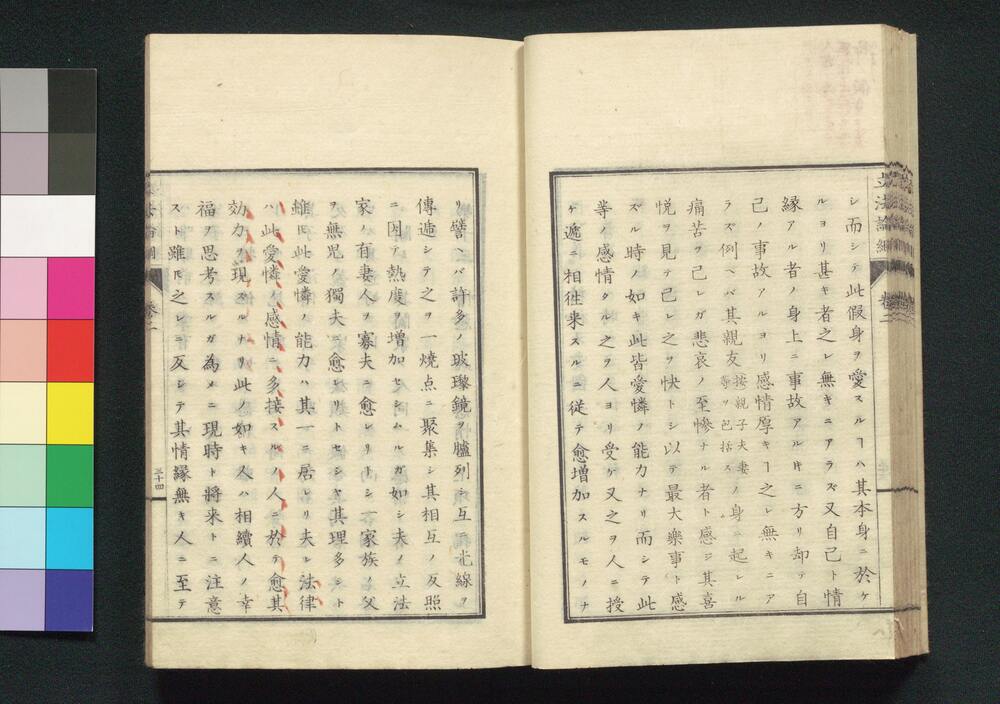 立法論綱 卷二
シ而シテ此假身ヲ愛スルヿハ其本身ニ於ケ
ルヨリ甚キ者之レ無キニアラズ又自己ト情
縁アル者ノ身上ニ事故アル𪜈ニ方リ却テ自
己ノ事故アルヨリ感情厚キヿ之レ無キニア
ラズ例ヘバ其親友
按親子夫妻
等ヲ包括ス
ノ身ニ起レル
痛苦ヲ己レガ悲哀ノ至慘ナル者ト感ジ其喜
悦ヲ見テ己レ之ヲ快トシ以テ最大樂事ト感
ズル時ノ如キ此皆愛憐ノ能力ナリ而シテ此
等ノ感情タル之ヲ人ヨリ受ケ又之ヲ人ニ授
ケ遞ニ相徃来スルニ従テ愈増加スルモノナ
リ譬ヘバ許多ノ玻瓈鏡ヲ臚列シ互ニ光線ヲ
傳遞シテ之ヲ一燒点ニ聚集シ其相互ノ反照
ニ因テ熱度ヲ増加セシムルガ如シ夫ノ立法
家ノ有妻人ヲ寡夫ニ愈レリトシ一家族ノ父
ヲ無児ノ獨夫ニ愈レリトセシヤ其理多シト
雖𪜈此愛憐ノ能力ハ其一ニ居レリ夫レ法律
ハ此愛憐ノ感情ニ多接スルノ人ニ於テ愈其
効力ヲ現ズルナリ此ノ如キ人ハ相續人ノ幸
福ヲ思考スルガ為メニ現時ト將来トニ注意
スト雖𪜈之レニ反シテ其情縁無キ人ニ至テ
卷二
三十四